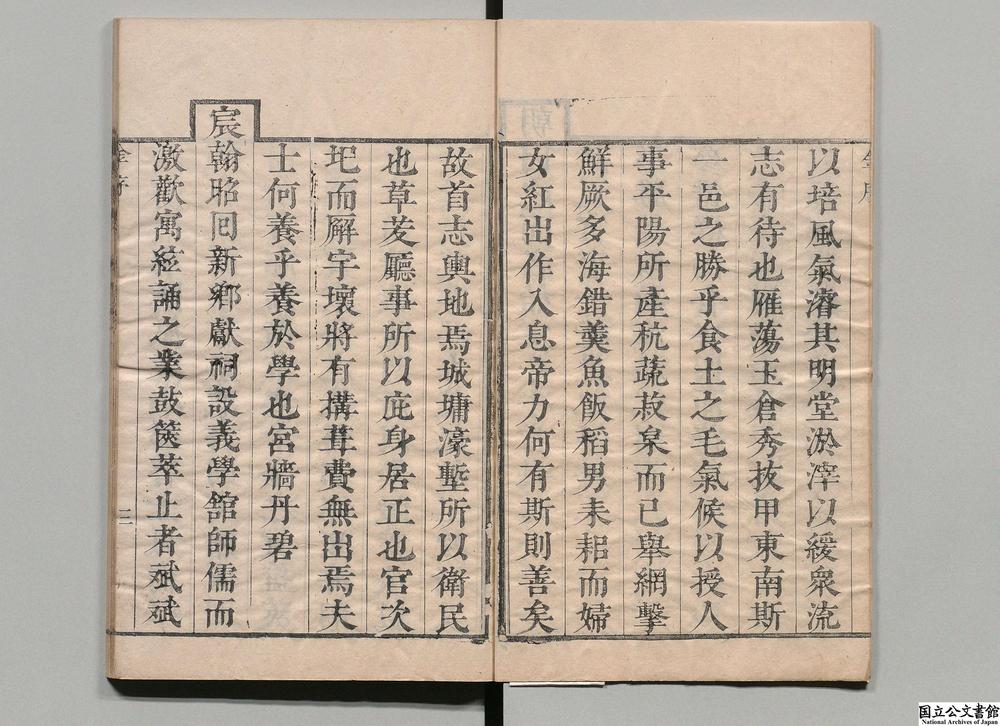 以培風氣濬其明堂淤滓以緩衆流
志有待也雁蕩玉倉秀拔甲東南斯
一邑之勝乎食土之毛氣候以授人
事平陽所產秔蔬菽枲而已舉網擊
鮮厥多海錯羹魚飯稻男耒耜而婦
女紅出作入息帝力何有斯則善矣
故首志輿地焉城墉濠塹所以衛民
也草茇廳事所以庇身居正也官次
圯而廨宇壞將有搆葺費無出焉夫
士何養乎養於學也宮牆丹碧
宸翰昭回新鄉獻祠設義學舘師儒而
激歡寓絃誦之業鼓篋萃止者斌斌
三
国立公文書館
National Archives of Japan